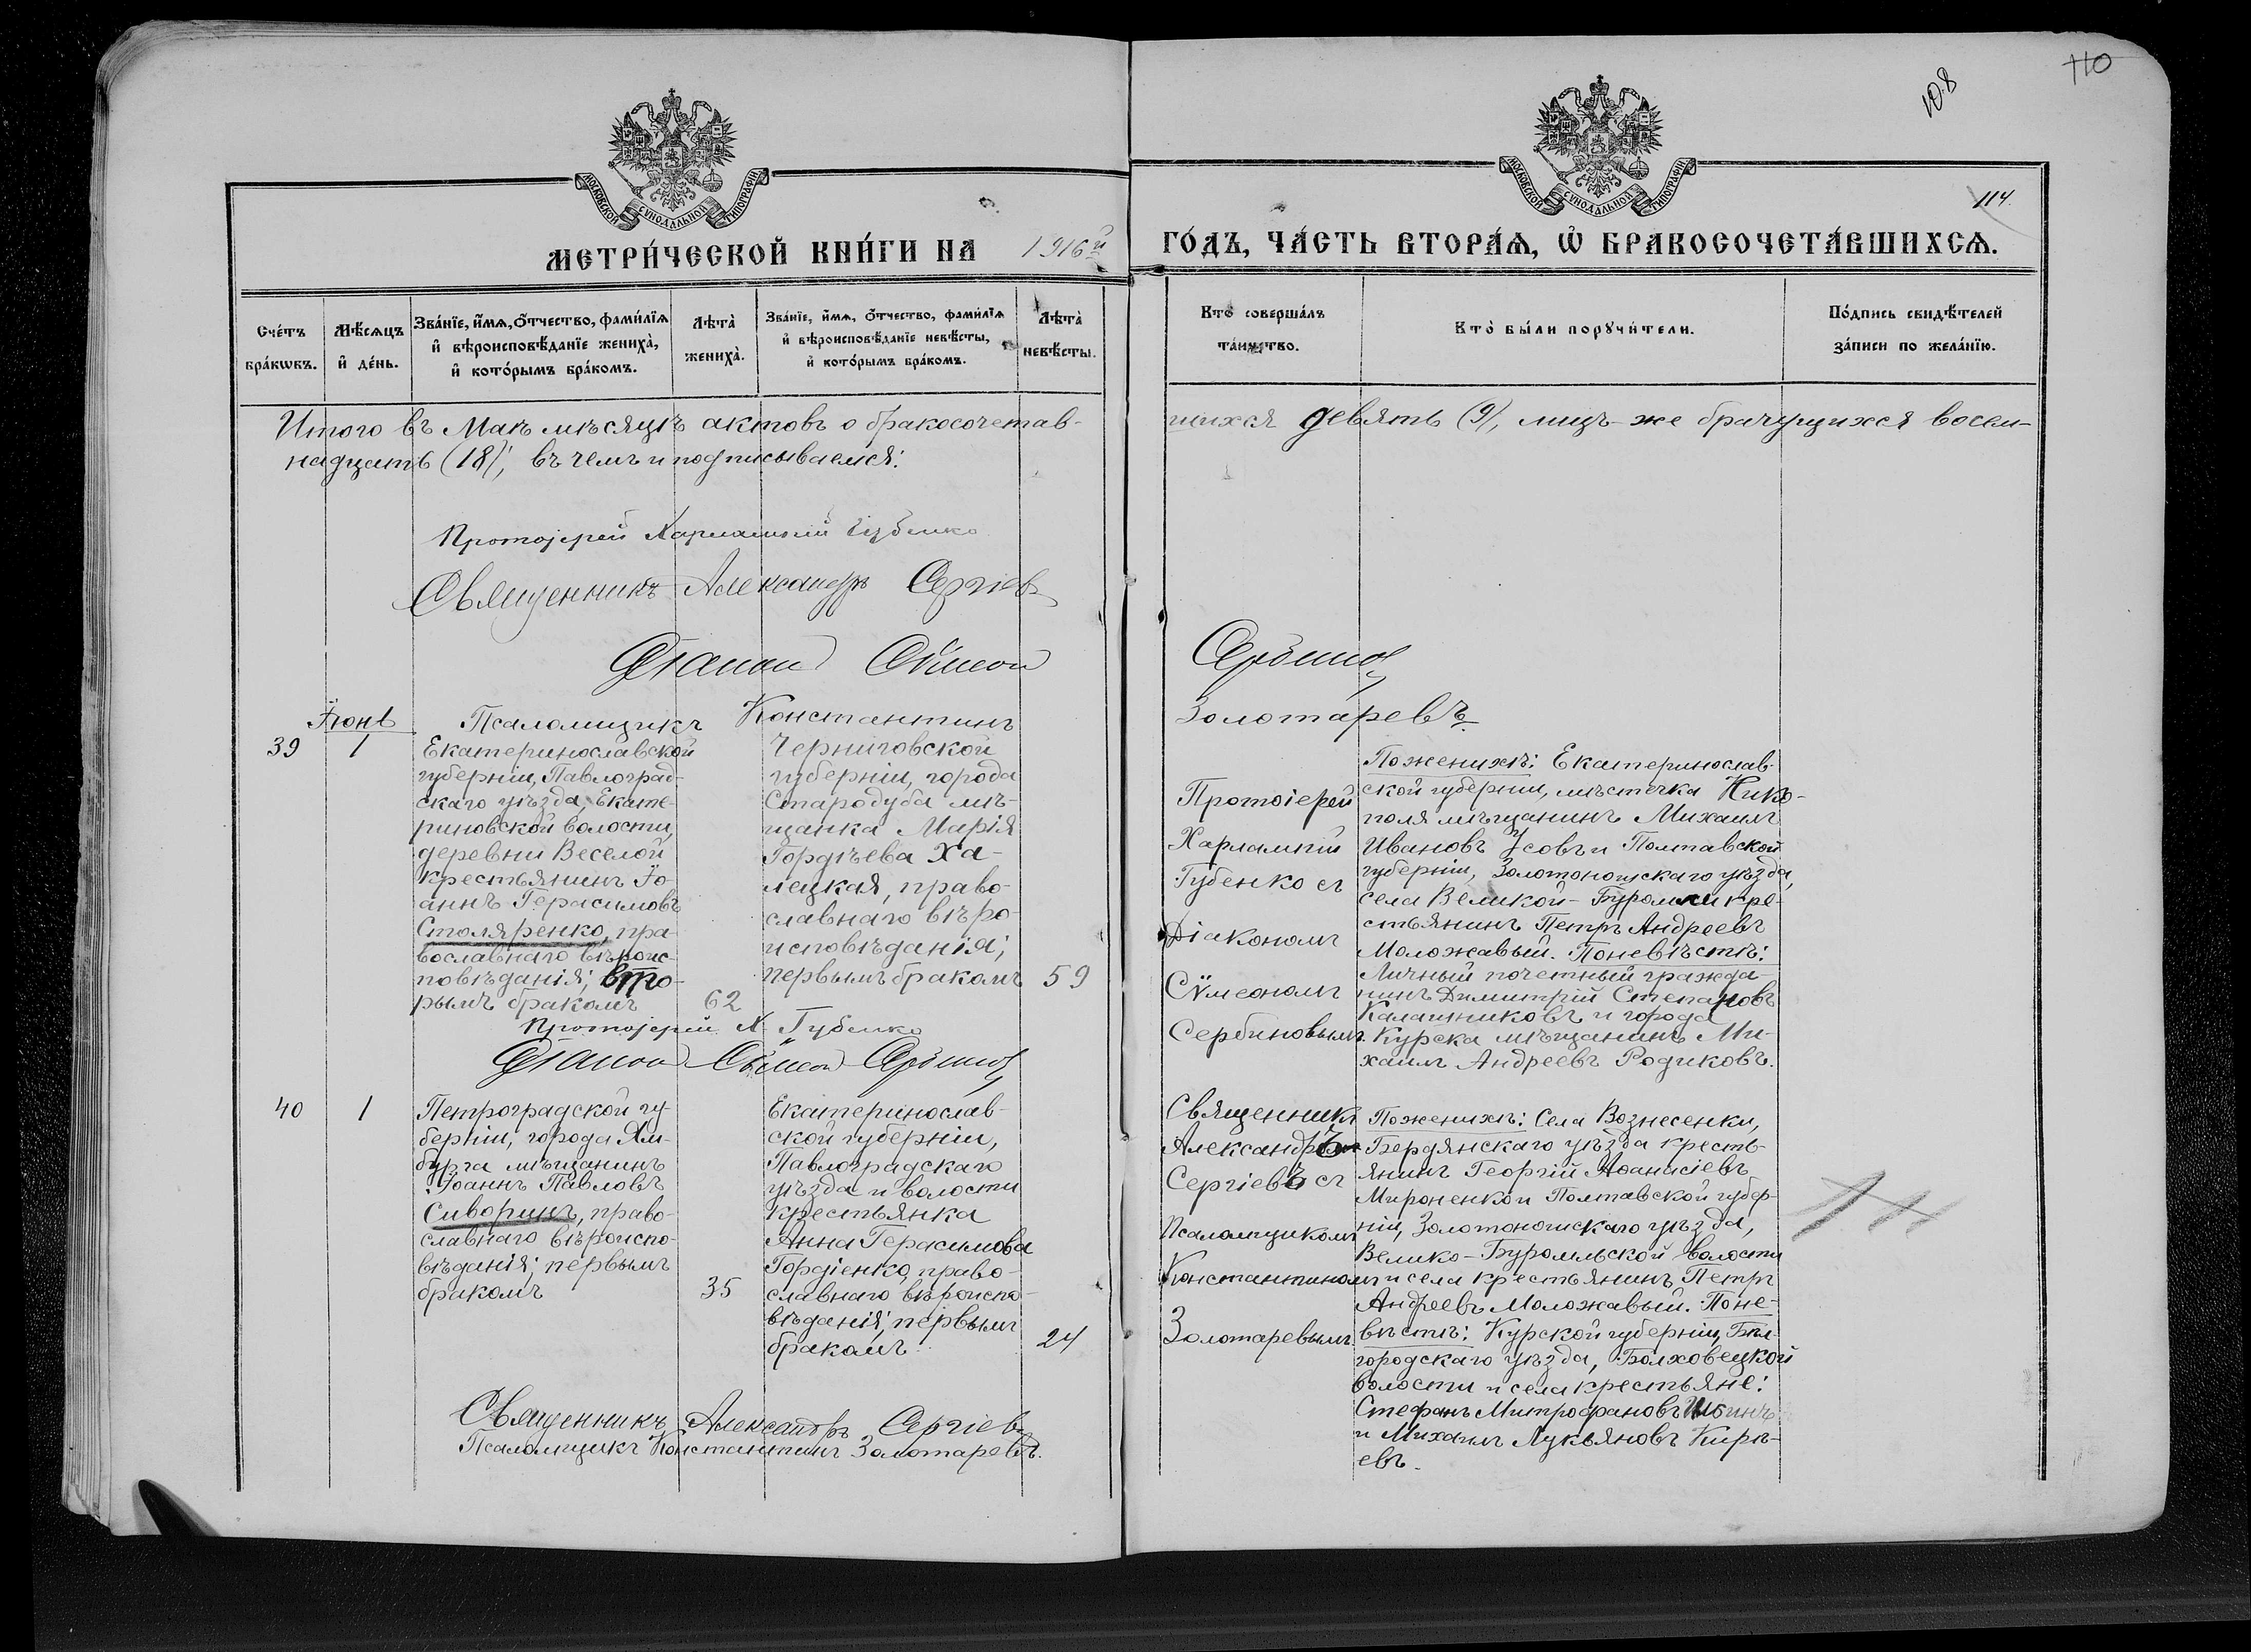 108
110
114
МОСКОВСКОЙ СѴНОДАЛЬНОЙ ТИПОГРАФІИ
МОСКОВСКОЙ СѴНОДАЛЬНОЙ ТИПОГРАФІИ
МЕТРИ́ЧЕСКОЙ КНИ́ГИ НА 1916й ГО́ДЪ, ЧА́СТЬ ВТОРА́Ѧ, Ѡ҆ БРАКОСОЧЕТА́ВШИХСѦ.
Сче́тъ
бра́кѡвъ.
Мѣ́сяцъ
и҆ де́нь.
Зва́нїе, и҆́мѧ, ѻ҆́тчество, фами́лїѧ
и҆ вѣроисповѣ́данїе жениха̀,
и҆ кото́рымъ бра́комъ.
Лѣта̀
жениха̀.
Зва́нїе, и҆́мѧ, ѻ҆́тчество, фами́лїѧ
и҆ вѣроисповѣ́данїе невѣ́сты,
и҆ кото́рымъ бра́комъ.
Лѣта̀
невѣ́сты.
Кто̀ соверша́лъ
та́инство.
Кто̀ бы́ли порꙋчи́тели.
По́дпись свидѣ́телей
за́писи по жела́нїю.
Итого въ Маѣ мѣсяцѣ актовъ о бракосочетав-
шихся девять (9), лицъ-же брачущихся восем-
надцать (18), въ чемъ и подписываемся:
Протоjерей Харлампій Губенко
Священникъ Александръ Сергіевъ
Діаконъ Сѵмеонъ Сербиновъ
Псаломщикъ Константинъ Золотаревъ
Іюнь
39
1
Екатеринославской
губерніи, Павлоград-
скаго уѣзда, Екате-
риновской волости,
деревни Веселой
крестьянинъ Іо-
аннъ Герасимовъ
Столяренко, пра-
вославнаго вѣроис-
повѣданія; вто-
рымъ бракомъ
62
Черниговской
губерніи, города
Стародуба мѣ-
щанка Марія
Гордѣева Ха-
лецкая, право-
славнаго вѣро-
исповѣданія;
первымъ бракомъ
59
Протоіерей
Харлампій
Губенко съ
Діакономъ
Сѵмеономъ
Сербиновымъ.
По женихѣ: Екатеринослав-
ской губерніи, мѣстечка Нико-
поля мѣщанинъ Михаилъ
Ивановъ Усовъ и Полтавской
губерніи, Золотоношскаго уѣзда,
села Великой-Буромки кре-
стьянинъ Петръ Андреевъ
Моложавый. По невѣстѣ:
Личный почетный гражда-
нинъ Димитрій Степановъ
Калашниковъ и города
Курска мѣщанинъ Ми-
хаилъ Андреевъ Родиковъ.
Протоjерей Х. Губенко
Діаконъ Сѵмеонъ Сербиновъ
40
1
Петроградской гу-
берніи, города Ям-
бурга мѣщанинъ
Іоаннъ Павловъ
Сиворинъ, право-
славнаго вѣроиспо-
вѣданія; первымъ
бракомъ
35
Екатеринослав-
ской губерніи,
Павлоградскаго
уѣзда и волости
крестьянка
Анна Герасимова
Гордіенко, право-
славнаго вѣроиспо-
вѣданія; первымъ
бракомъ
24
Священникъ
Александръ
Сергіевъ съ
Псаломщикомъ
Константиномъ
Золотаревымъ
По женихѣ: Села Вознесенки,
Бердянскаго уѣзда кресть-
янинъ Георгій Аѳанасіевъ
Мироненко и Полтавской губер-
ніи, Золотоношскаго уѣзда,
Велико-Буромльской волости
и села крестьянинъ Петръ
Андреевъ Моложавый. По не-
вѣстѣ: Курской губерніи, Бѣл-
городскаго уѣзда, Болховецкой
волости и села крестьяне:
Стефанъ Митрофановъ
и Михаилъ Лукьяновъ Кирѣ-
евъ.
Священникъ Александръ Сергіевъ
Псаломщикъ Константинъ Золотаревъ.